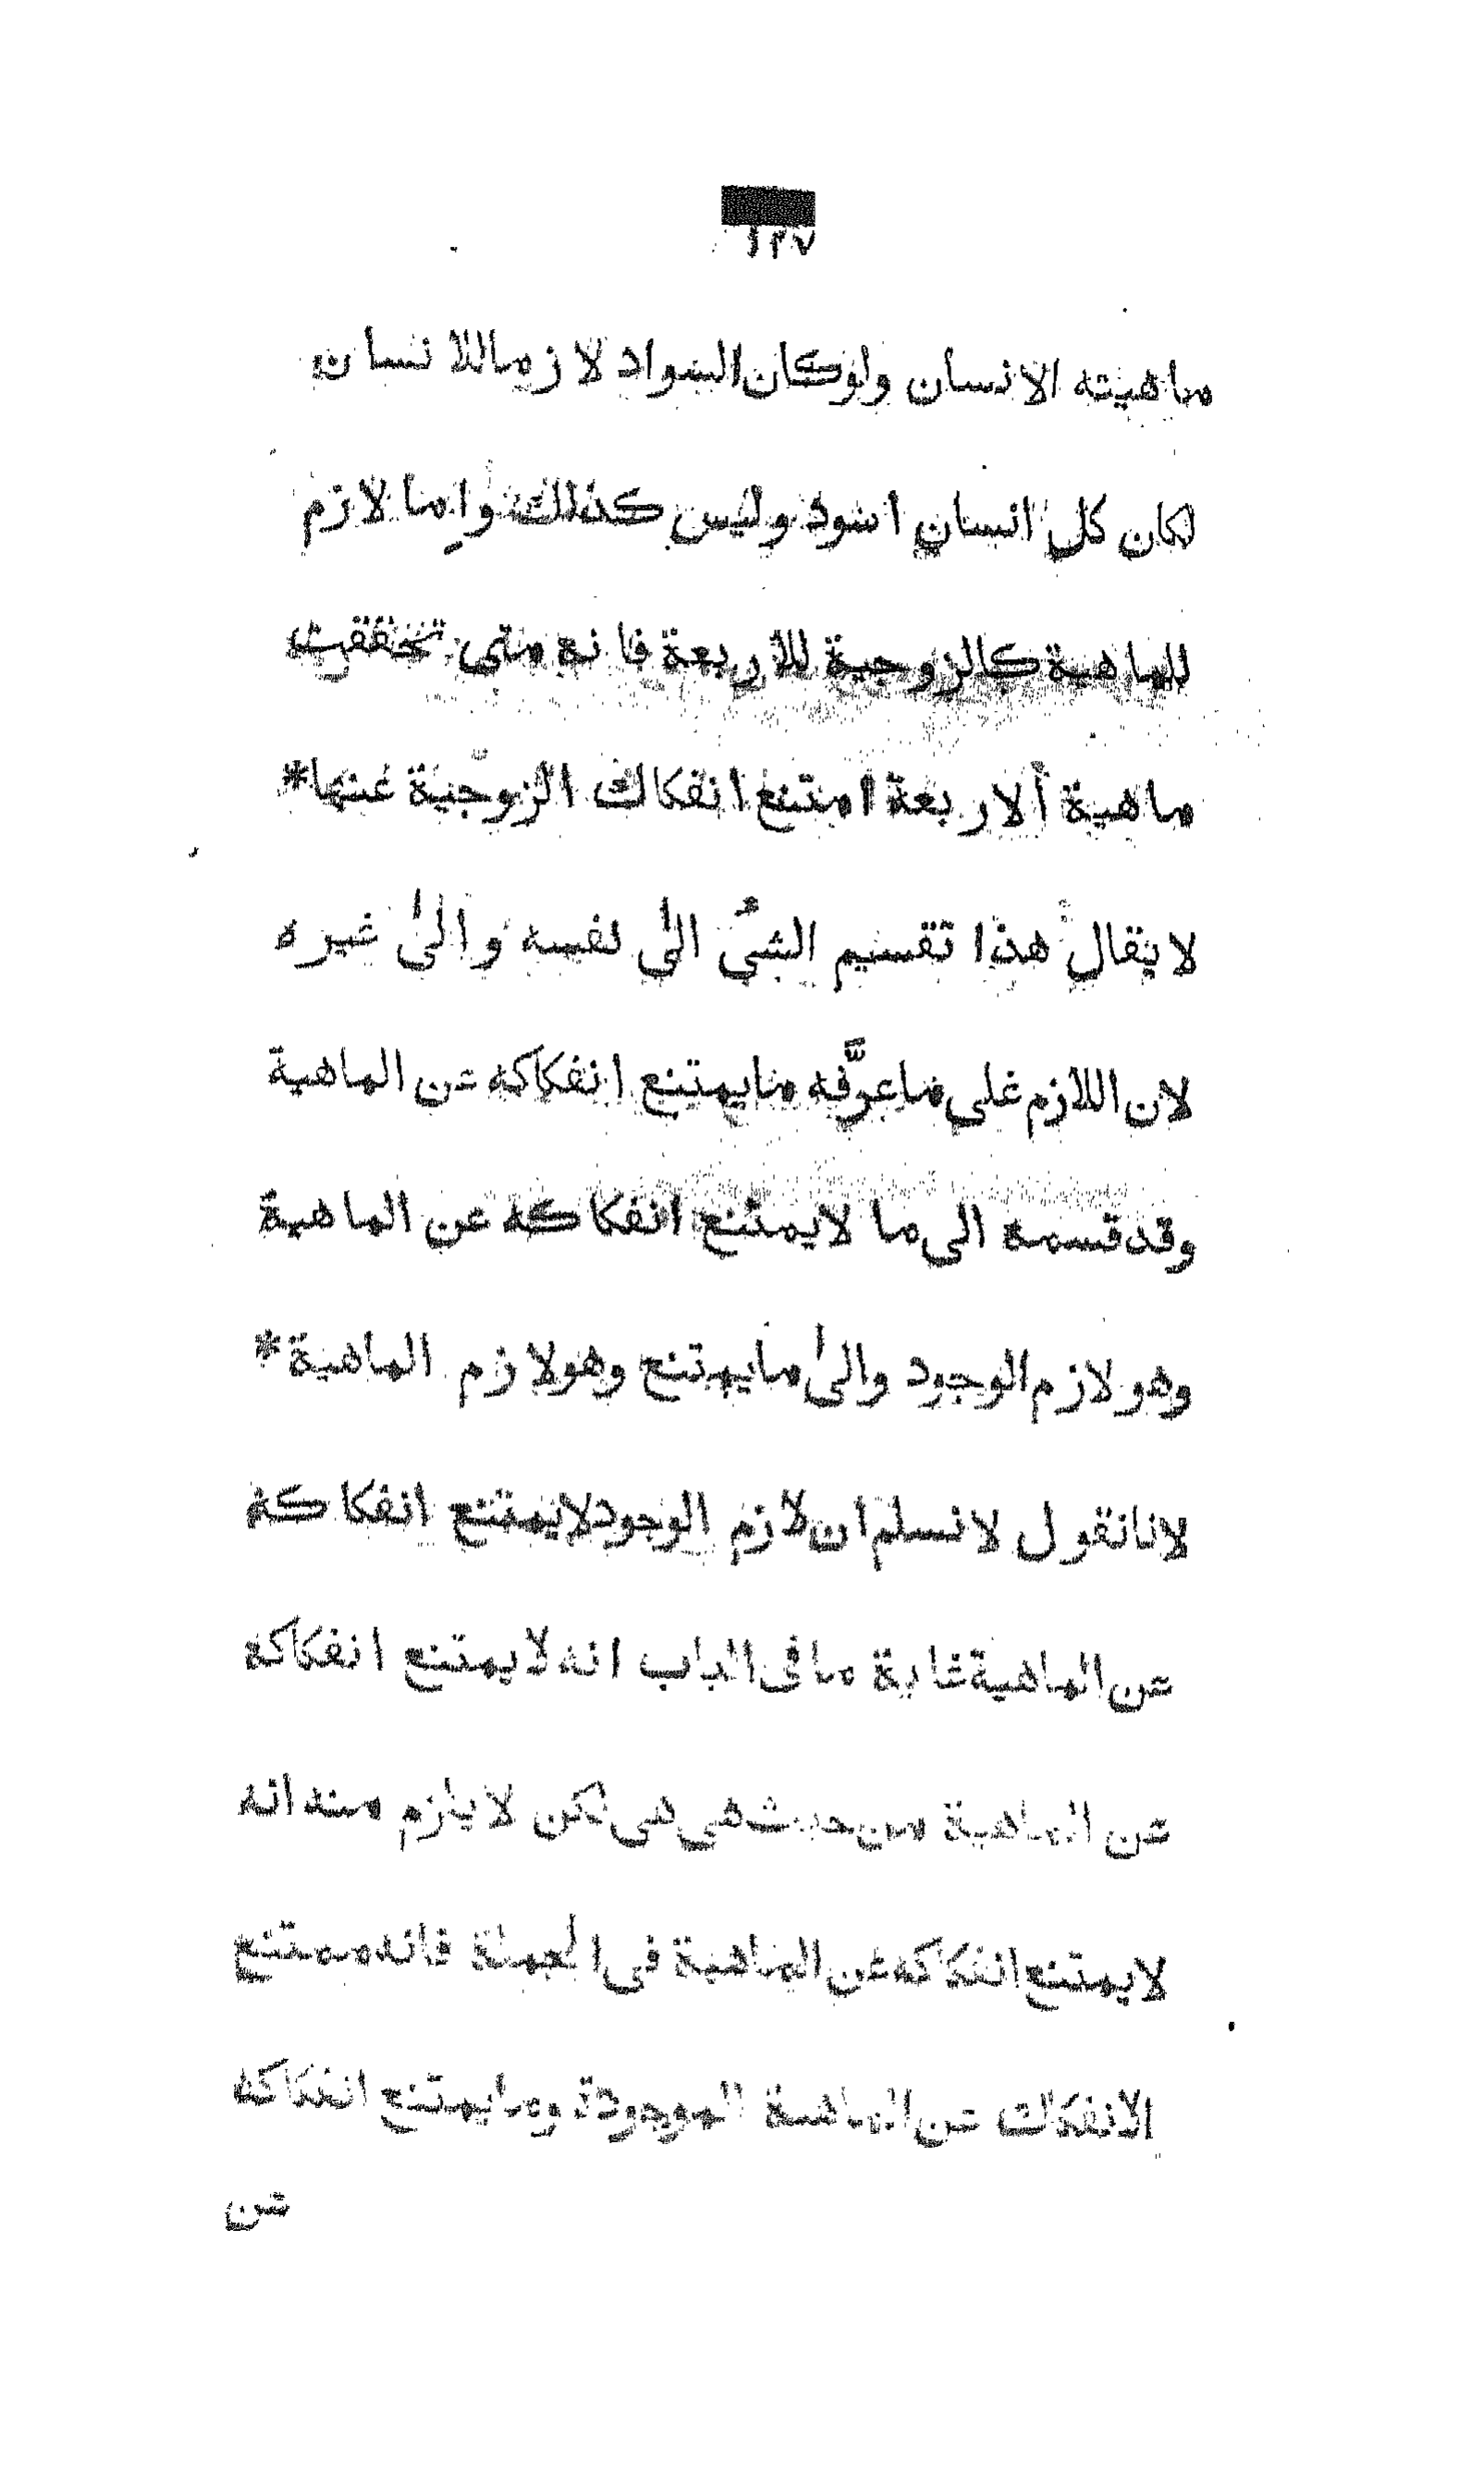 ١٢٧
ماهيته الانسان ولوكان السواد لازما للانسان
لكان كل انسان اسود وليس كذلك واما لازم
للماهية كالزوجية للاربعة فانه متى تحققت
ماهية ألاربعة امتنع انفكاك الزوجية عنها*
لا يقال هذا تقسيم الشئ الى نفسه والى غيره
لان اللازم على ماعرَّفه مايمتنع انفكاكه عن الماهية
وقد قسمه الى ما لايمتنع انفكاكه عن الماهية
وهو لازم الوجود والى مايمتنع وهو لازم الماهية*
لانا نقول لا نسلم ان لازم الوجود لايمتنع انفكاكه
عن الماهية غاية ما فى الباب انه لا يمتنع انفكاكه
عن الماهية من حيث هى هى لكن لا يلزم منه انه
لا يمتنع انفكاكه عن الماهية فى الجملة فانه ممتنع
الانفكاك عن الماهية الموجودة وما يمتنع انفكاكه
عن